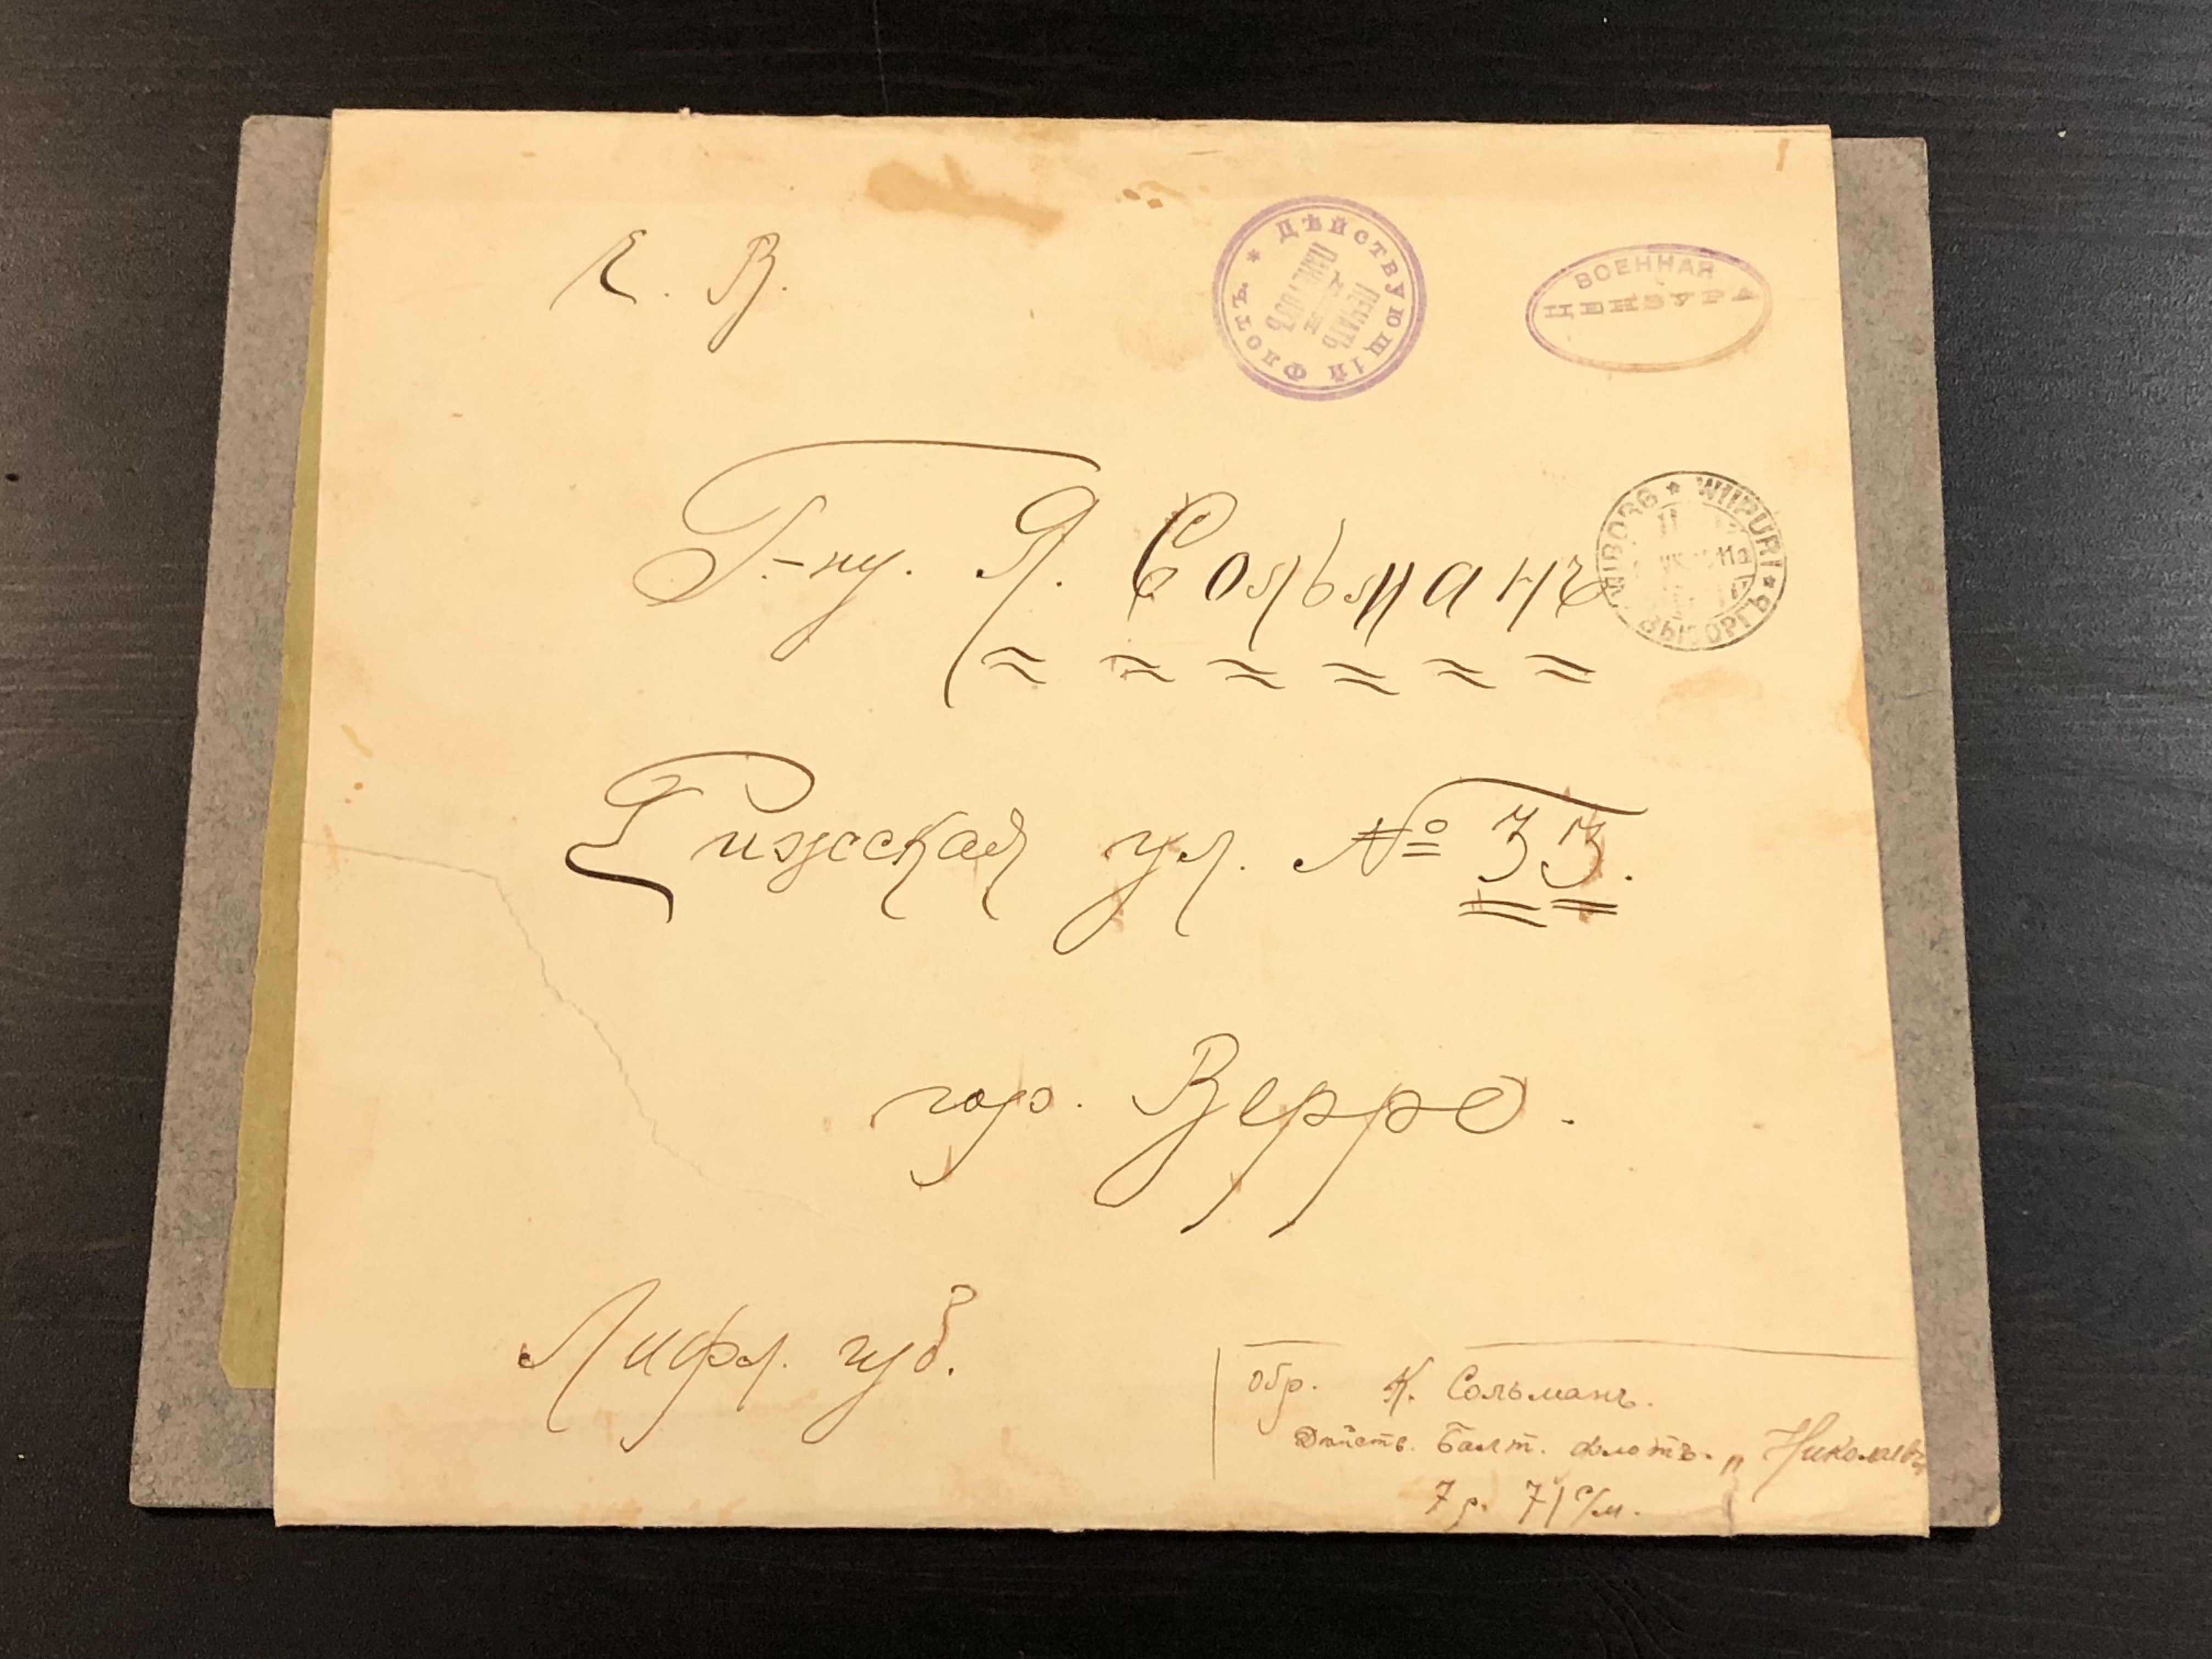 Е. В.
ДѢЙСТВУЮЩІЙ ФЛОТЪ *
ПЕЧАТЬ
ДЛЯ
ПАКЕТОВЪ
ВОЕННАЯ
ЦЕНЗУРА
Г-ну. Я. Сольманъ
WIBORG * WIIPURI * ВЫБОРГЪ
Рижская ул. № 33.
гор. Верро.
Лифл. губ.
обр. К. Сольманъ.
Дѣйств. Балт. флотъ. „Николаевъ
7 р. 71 с/м.